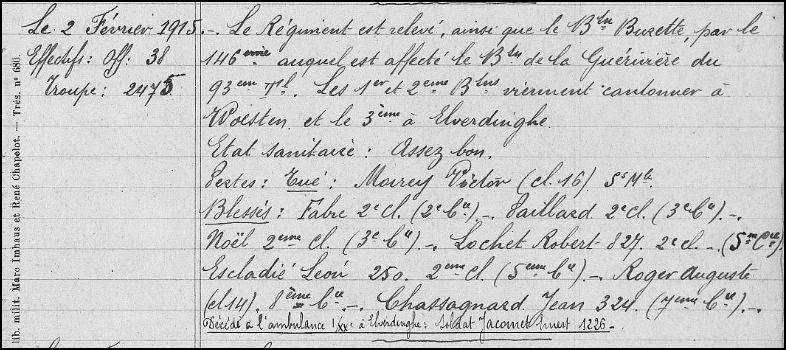 Le 2 Février 1915. -. Le Régiment est relevé, ainsi que le Bln Buzette, par le
Effectifs: Off: 38 146ème auquel est affecté le Bln de la Guérivière du
Troupe: 2475 93em Tal. Les 1er et 2eme Blns viennent cantonner à
Woesten et le 3ème à Elverdinghe.
Etat sanitaire: Assez bon.
Pertes: Tué: Marey Victor (cl. 16)
Blessés: Fabre 2e Cl. (2e Cie) -. Paillard 2e Cl. (3e Cie) -.
Noël 2eme Cl. (3e Cie) -. Lochet Robert 827. 2e cl. - (5me Cie)
Escladié Léon 250. 2eme Cl. (5eme Cie) -. Roger Auguste
(cl 14). 8ème Cie -. Chassagnard Jean 324. (7eme Cie) -.
Décédé à l'ambulance à Elverdinghe: Soldat Jacomet Ernest 1226 -.
lib. milit. Marc Imhaus et René Chapelot. — Trés. nº 680.